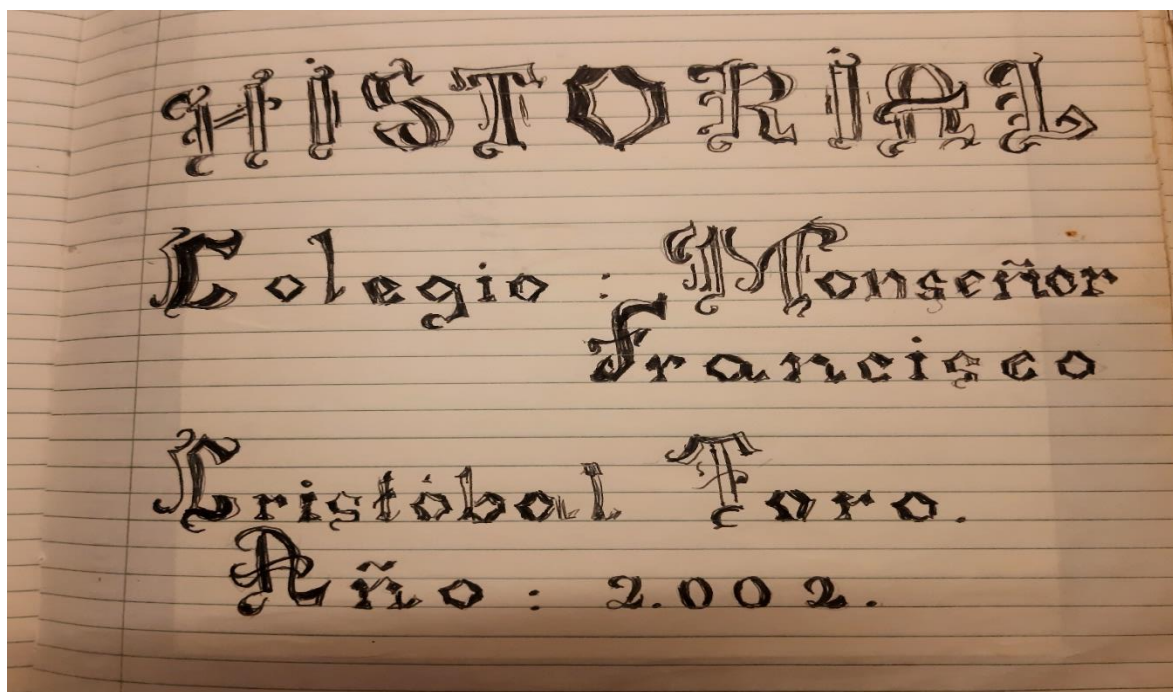 HISTORIAL
Colegio : Monseñor
Francisco
Cristóbal Toro.
Año : 2.002.